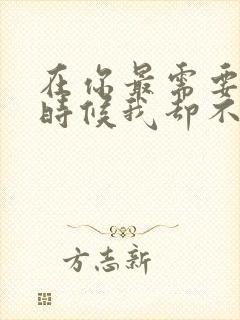 在你最需要
时候我却不
方志新